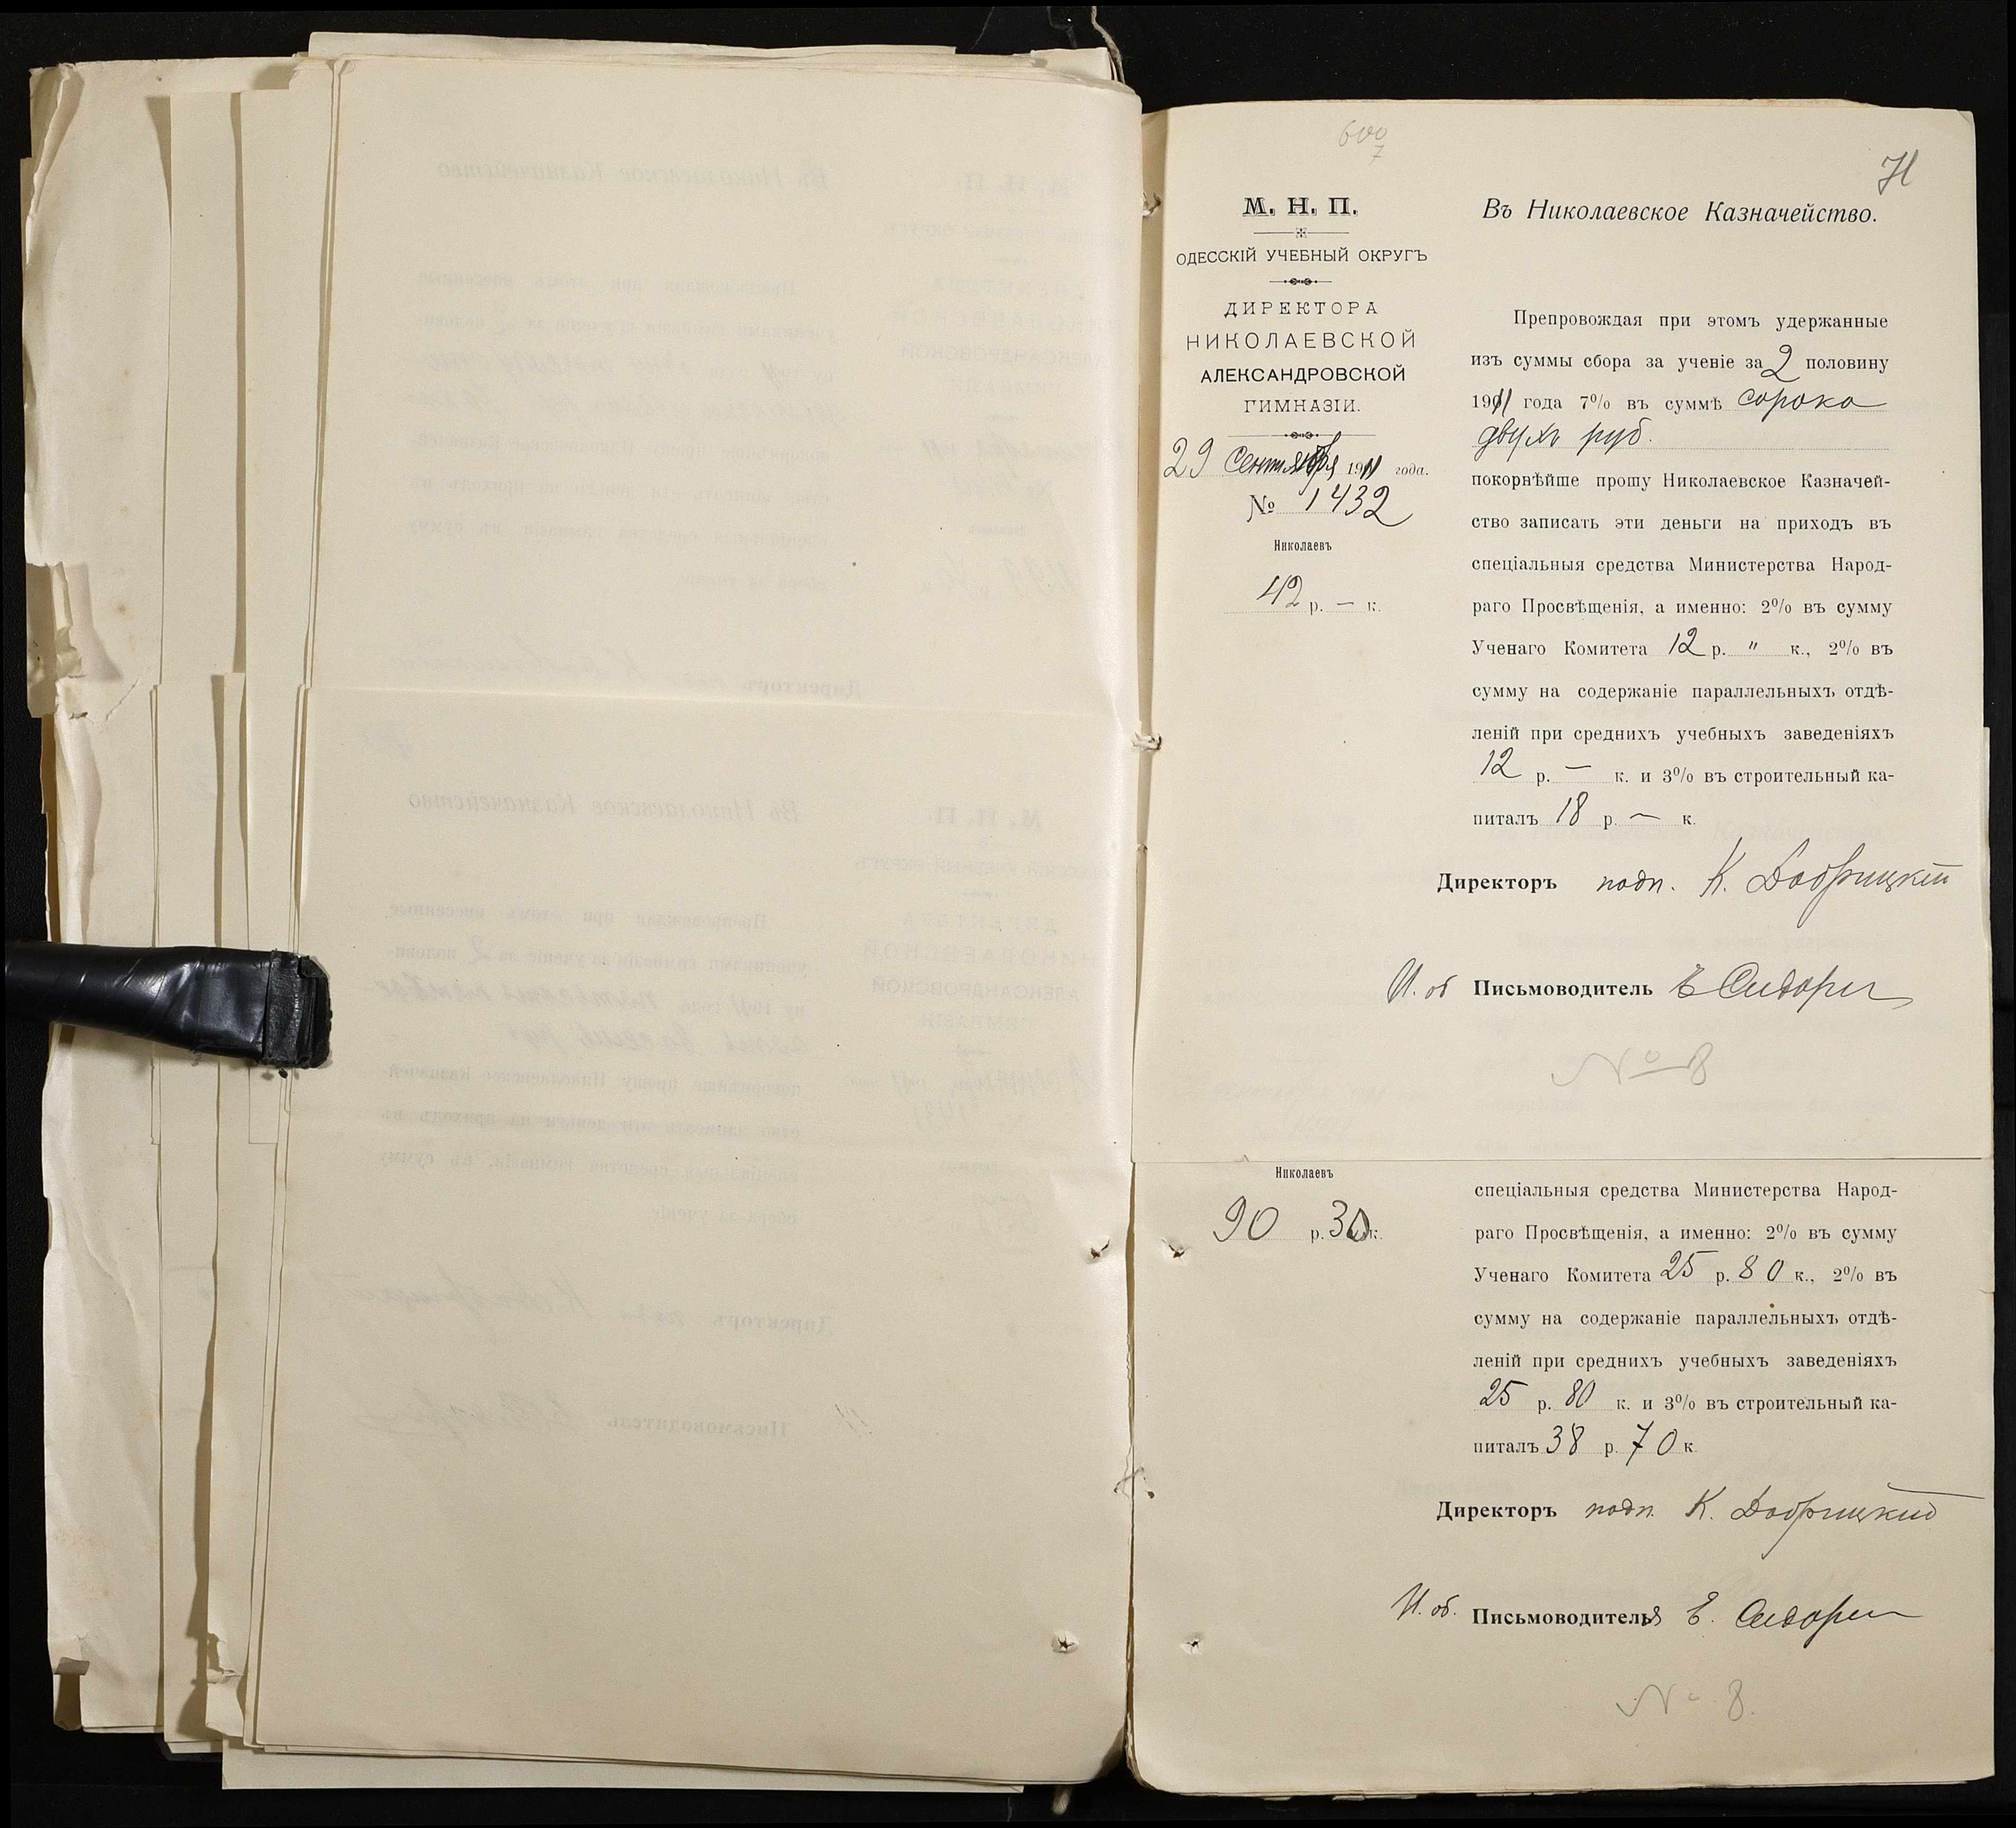 600
7
71
М. Н. П.
ОДЕССКІЙ УЧЕБНЫЙ ОКРУГЪ
ДИРЕКТОРА
НИКОЛАЕВСКОЙ
АЛЕКСАНДРОВСКОЙ
ГИМНАЗІИ.
29 Сентября 1911 года.
№ 1432
Николаевъ
42 р. — к.
Въ Николаевское Казначейство.
Препровождая при этомъ удержанные
изъ суммы сбора за ученіе за 2 половину
1911 года 7% въ суммѣ сорока
двухъ руб.
покорнѣйше прошу Николаевское Казначей-
ство записать эти деньги на приходъ въ
спеціальныя средства Министерства Народ-
раго Просвѣщенія, а именно: 2% въ сумму
Ученаго Комитета 12 р. " к., 2% въ
сумму на содержаніе параллельныхъ отдѣ-
леній при среднихъ учебныхъ заведеніяхъ
12 р. — к. и 3% въ строительный ка-
питалъ 18 р. — к.
Директоръ подп. К. Добрицкій
И. об Письмоводитель Е Сидорен
№ 8
Николаевъ
90 р. 30 к.
спеціальныя средства Министерства Народ-
раго Просвѣщенія, а именно: 2% въ сумму
Ученаго Комитета 25 р. 80 к., 2% въ
сумму на содержаніе параллельныхъ отдѣ-
леній при среднихъ учебныхъ заведеніяхъ
25 р. 80 к. и 3% въ строительный ка-
питалъ 38 р. 70 к.
Директоръ подп. К. Добрицкій
И. об. Письмоводителя Е. Сидорен
№ 8.